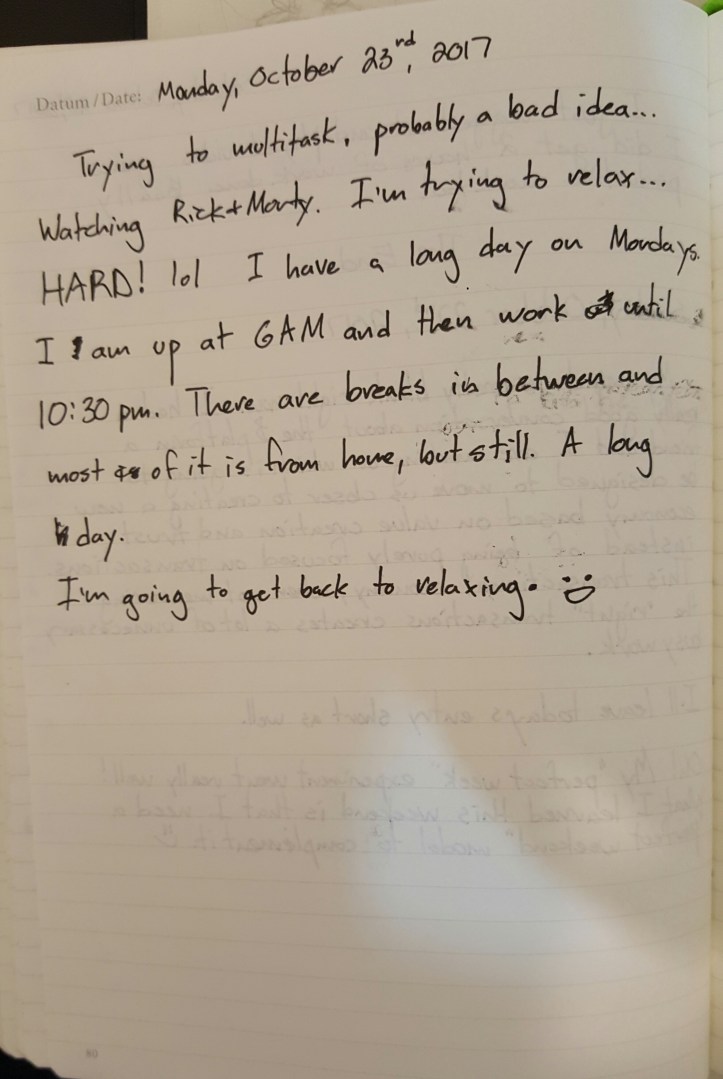 Datum / Date: Monday, October 23rd, 2017
Trying to multitask, probably a bad idea...
Watching Rick + Morty. I'm trying to relax...
HARD! lol I have a long day on Mondays.
I am up at 6AM and then work until
10:30 pm. There are breaks in between and
most of it is from home, but still. A long
day.
I'm going to get back to relaxing. :)
80